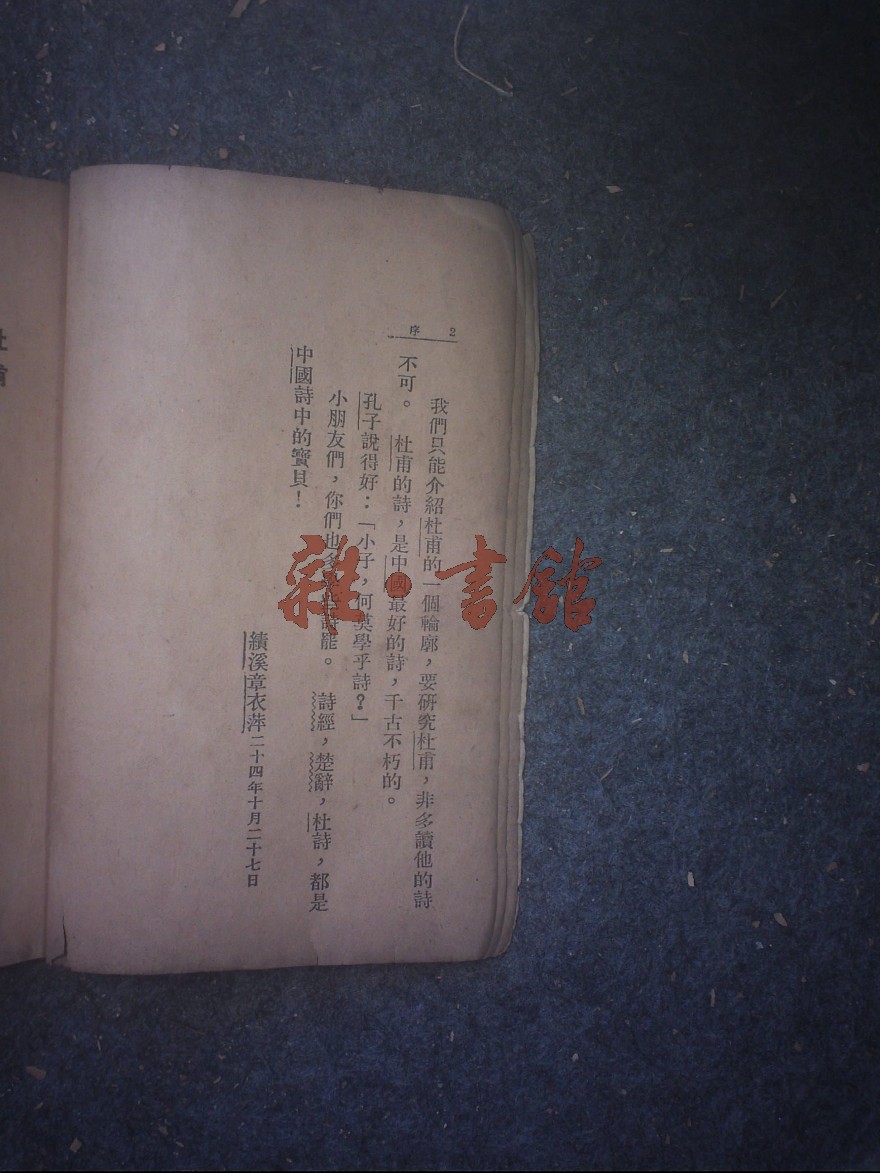 序 2
我們只能介紹杜甫的一個輪廓，要研究杜甫，非多讀他的詩
不可。　杜甫的詩，是中國最好的詩，千古不朽的。
孔子說得好：「小子，何莫學乎詩？」
小朋友們，你們也多詩罷。　詩經，楚辭，杜詩，都是
中國詩中的寶貝！
績溪章衣萍二十四年十月二十七日
雜·書館
杜甫